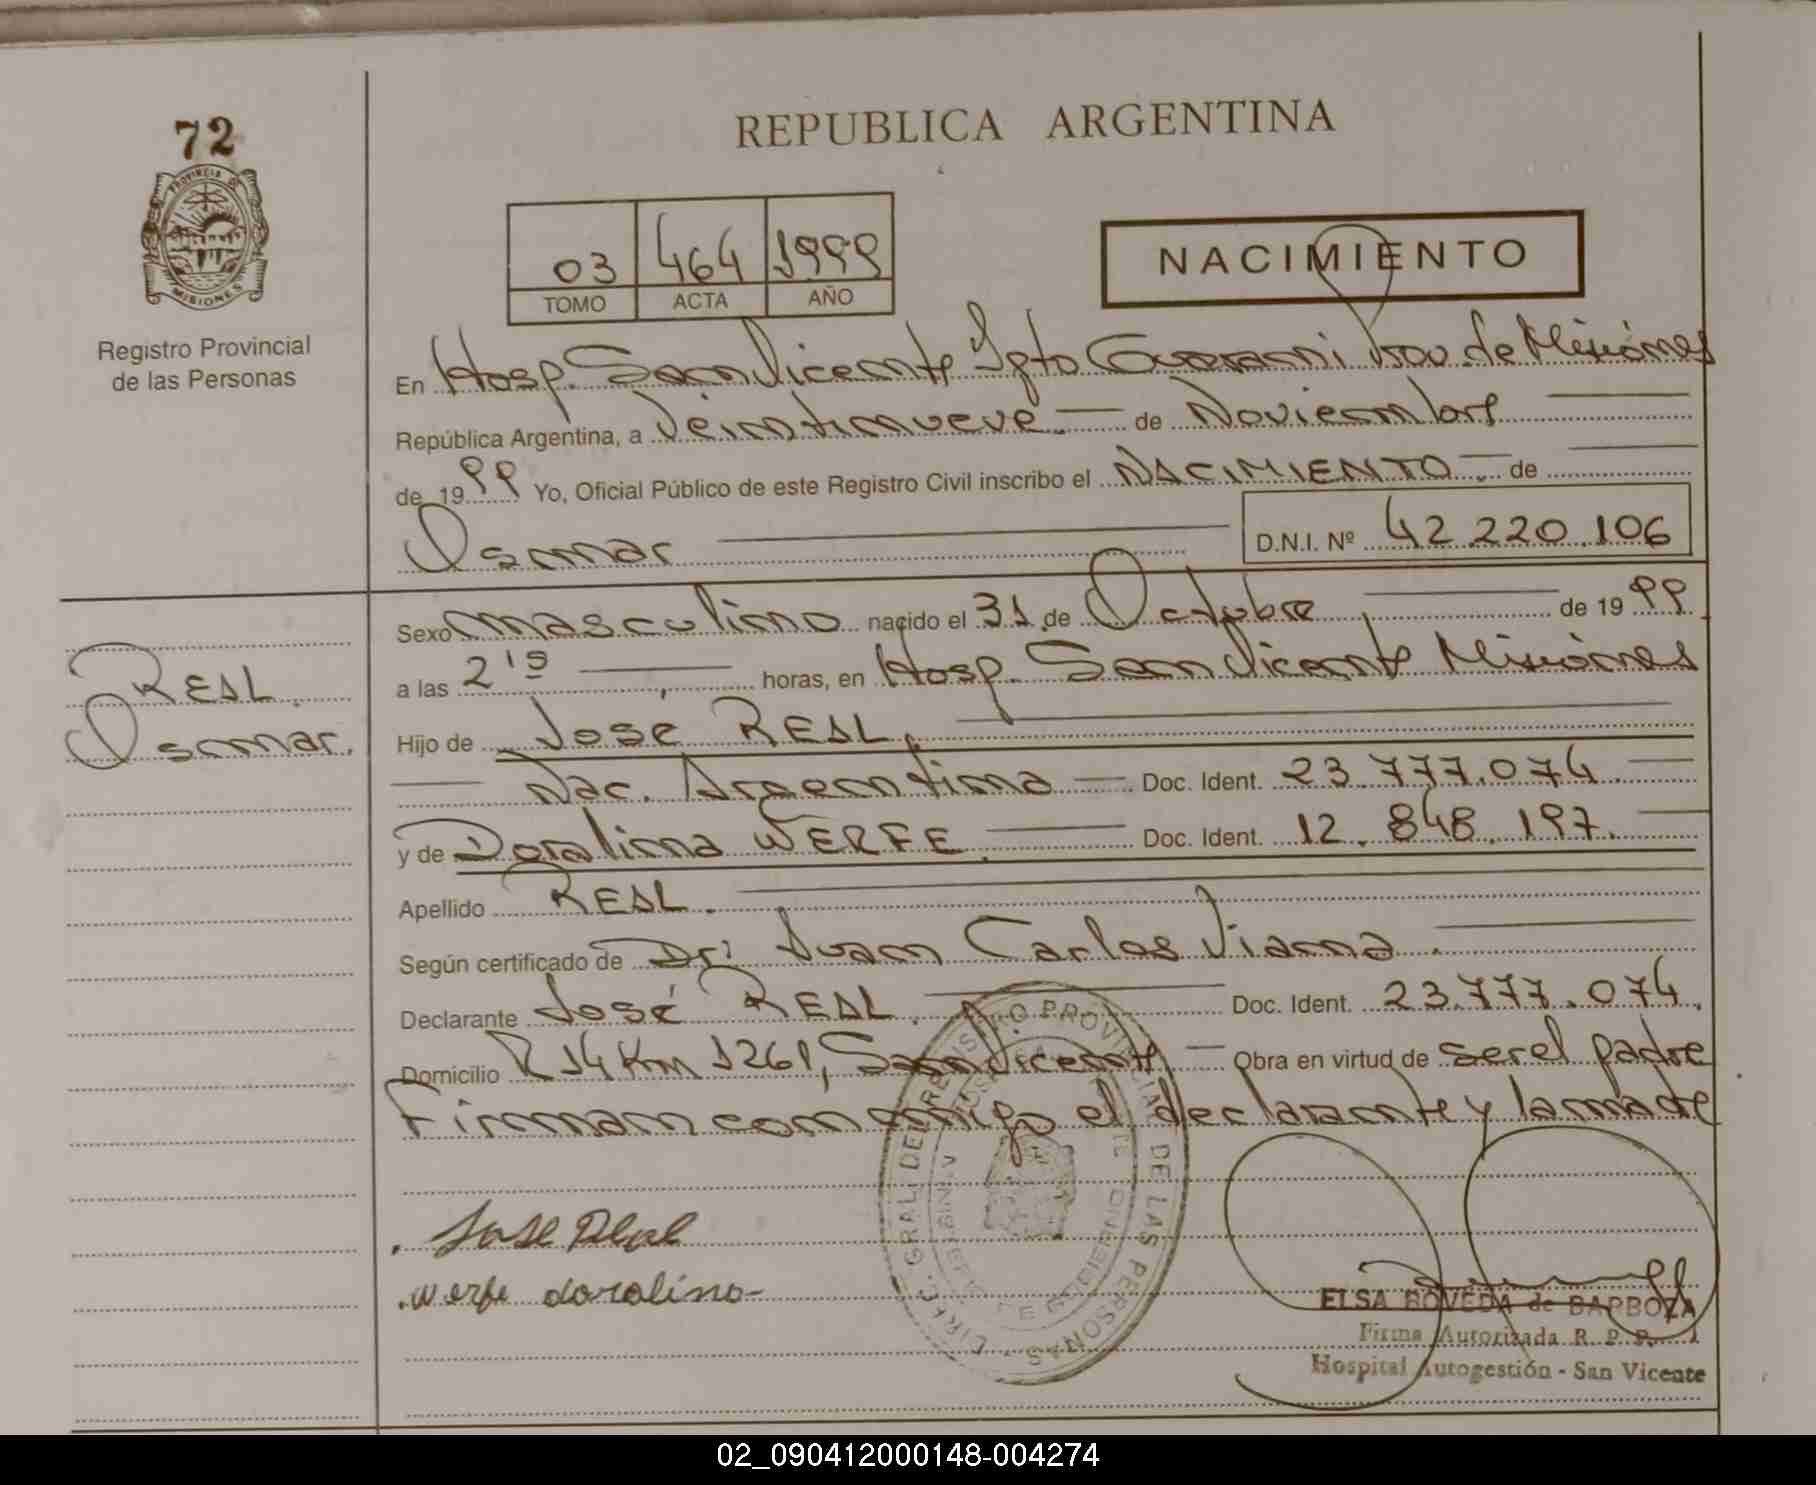 72
PROVINCIA DE
MISIONES
Registro Provincial
de las Personas
REPUBLICA ARGENTINA
03 464 1999
TOMO ACTA AÑO
NACIMIENTO
En Hosp. San Vicente Dpto Guaraní Prov. de Misiones
República Argentina, a Veintinueve de Noviembre
de 1999 Yo, Oficial Público de este Registro Civil inscribo el NACIMIENTO de
Osmar
D.N.I. Nº 42.220.106
Sexo masculino nacido el 31 de Octubre de 1999.
a las 2 15 horas, en Hosp. San Vicente Misiones
REAL
Osmar.
Hijo de José REAL,
Nac. Argentina Doc. Ident. 23.777.074
y de Doralina WERFE Doc. Ident. 12.848.197.
Apellido REAL.
Según certificado de Dr. Juan Carlos Viana.
Declarante José REAL. Doc. Ident. 23.777.074.
Domicilio R 14 Km 1261, San Vicente Obra en virtud de ser el padre
Firman conmigo el declarante y la madre
DE LAS PERSONAS
Jose Real
werfe doralina
ELSA BOVEDA de BARBOZA
Firma Autorizada R. P. P.
Hospital Autogestión - San Vicente
02_090412000148-004274